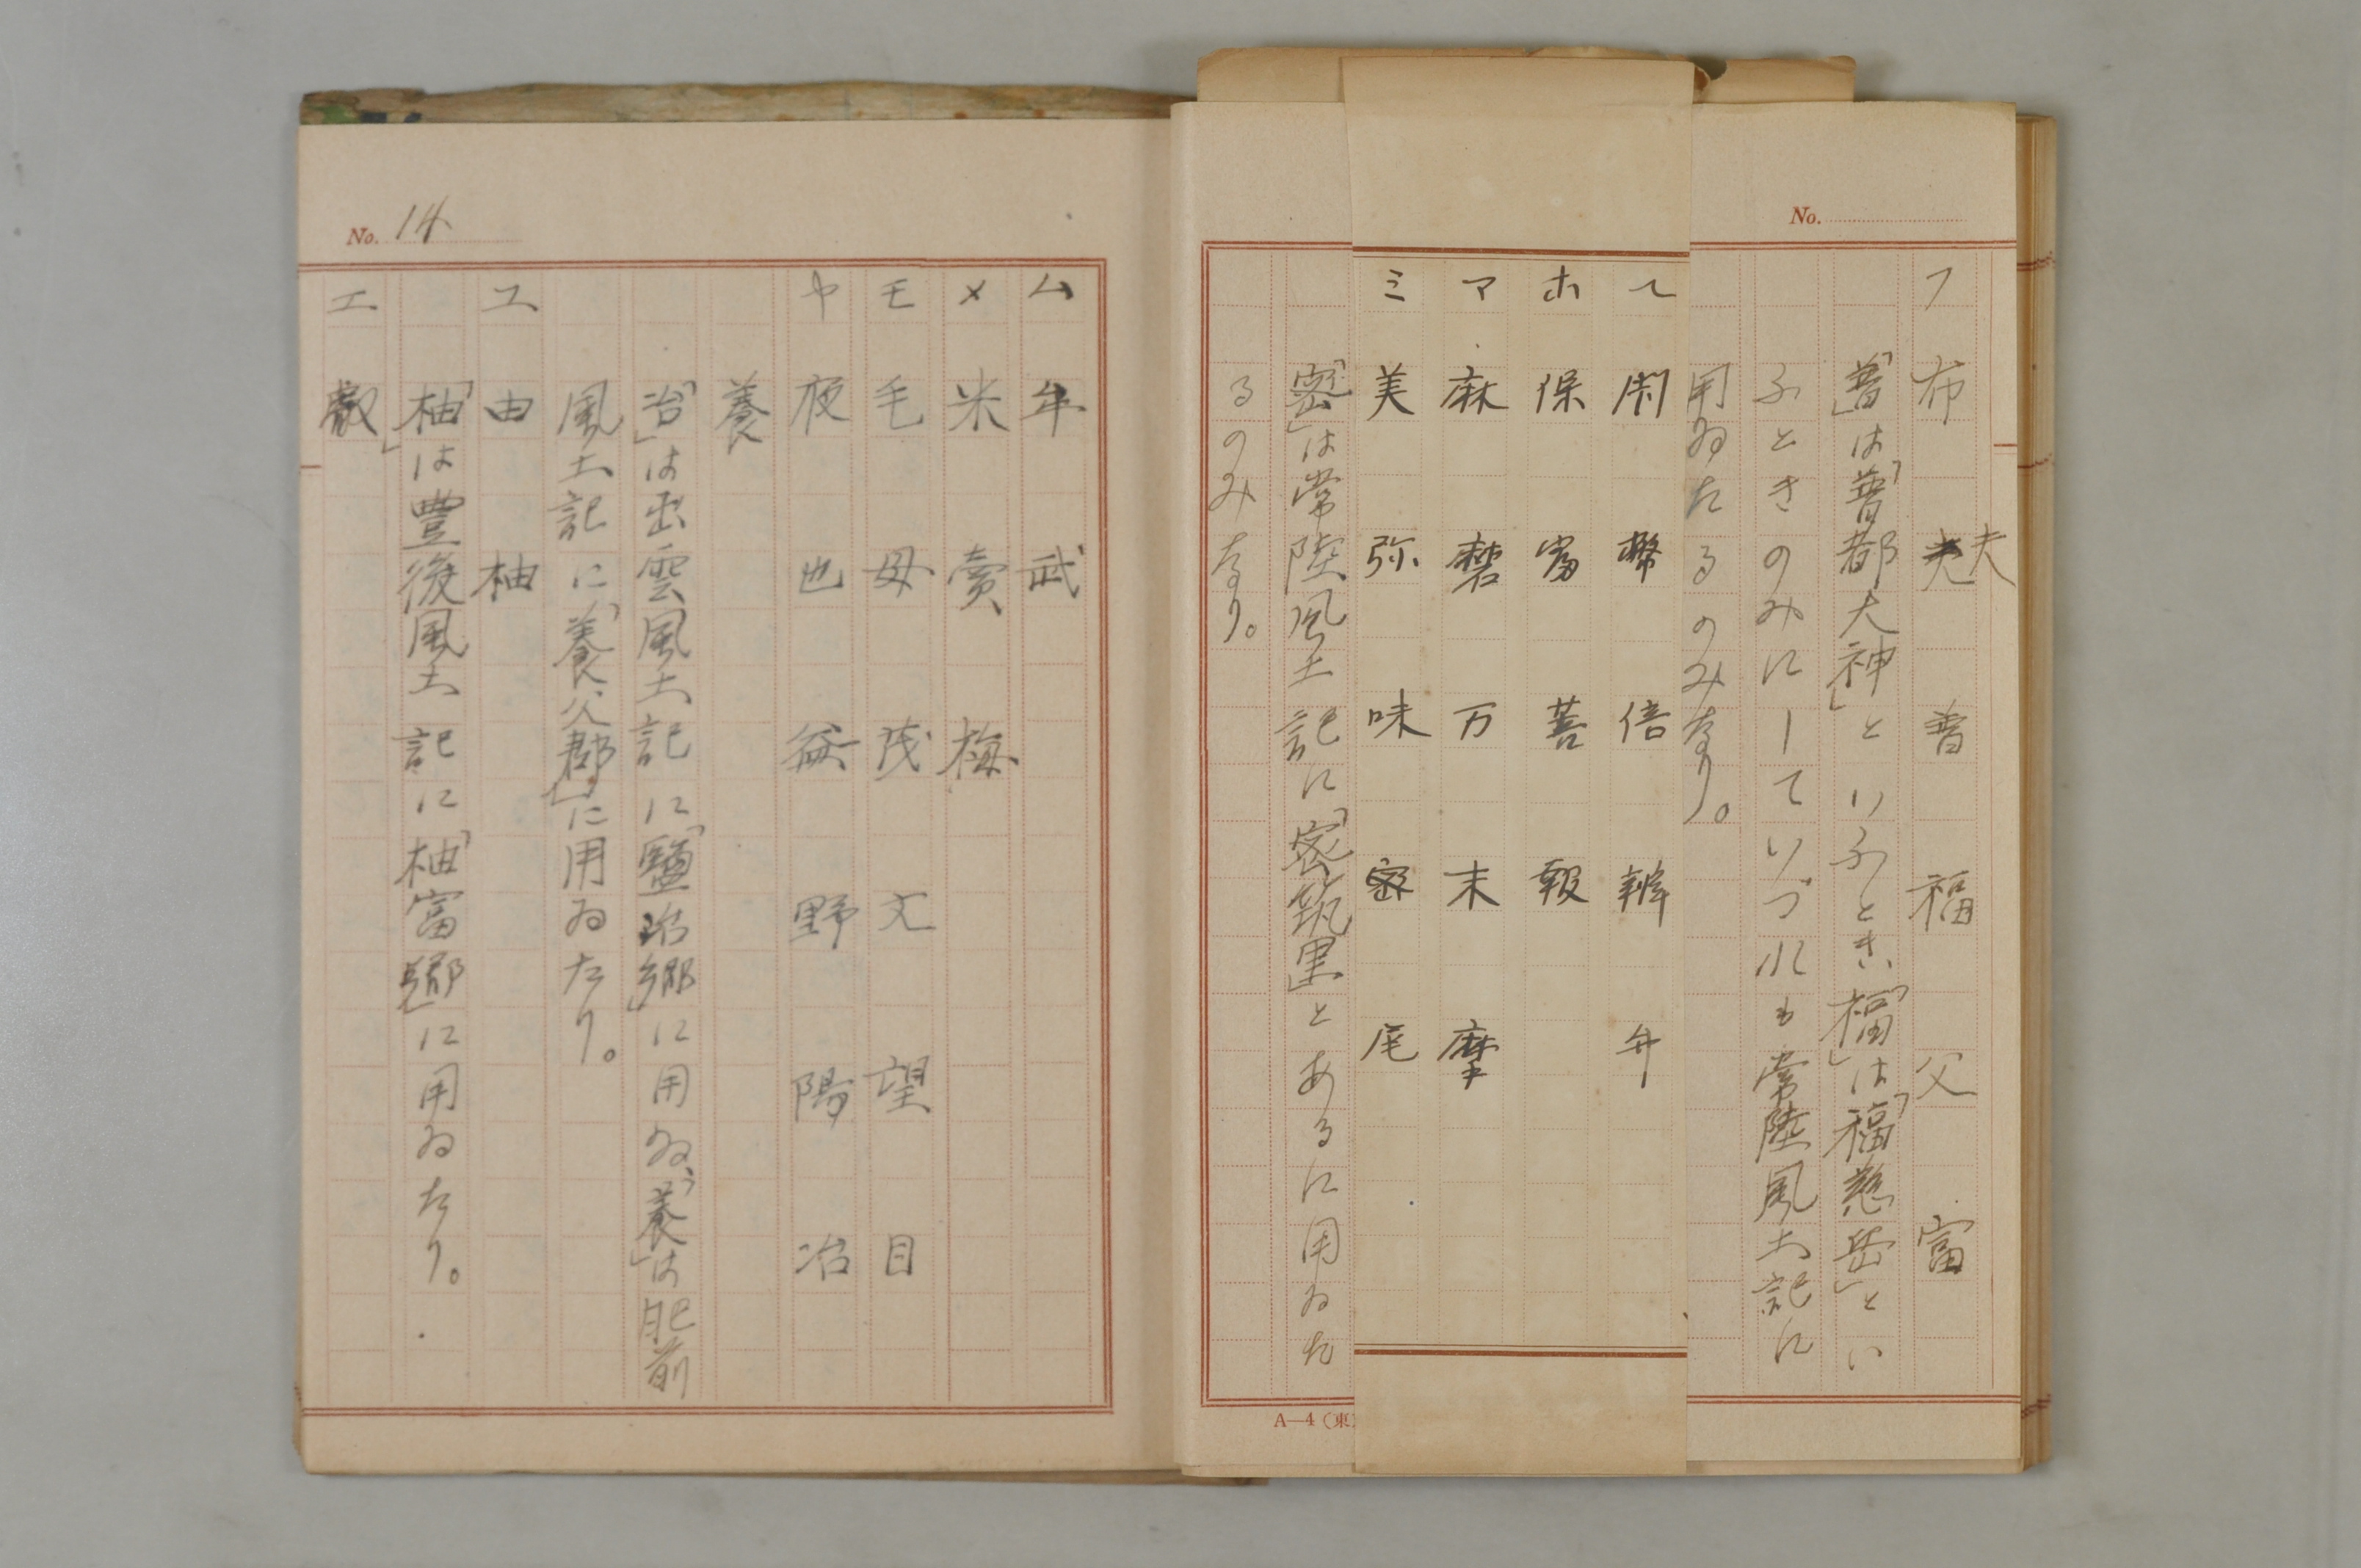 No.
フ 布 夫 普 福 父 富
「普」は「普都大神」といふとき、「福」は「福慈岳」とい
ふときのみにしていづれも常陸風土記に
用ゐたるのみなり。
ヘ 閇 幣 倍 辨 弁
ホ 保 富 菩 報
マ 麻 磨 万 末 摩
ミ 美 弥 味 密 尾
「密」は常陸風土記に「密筑里」とあるに用ゐた
るのみなり。
A—4（東
No. 14
ム 牟 武
メ 米 賣 梅
モ 毛 母 茂 文 望 目
ヤ 夜 也 益 野 陽 冶
養
「冶」は出雲風土記に「鹽冶郷」に用ゐ、「養」は肥前
風土記に「養父郡」に用ゐたり。
ユ 由 柚
「柚」は豊後風土記に「柚富郷」に用ゐたり。
エ 叡